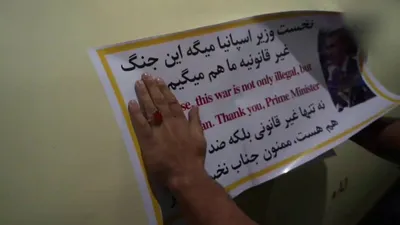 نخست وزیر اسپانیا میگه این جنگ
غیر قانونیه ما هم میگیم
se, this war is not only illegal, but
an. Thank you, Prime Minister
نه تنها غیر قانونی بلکه ضد
هم هست، ممنون جناب نخ